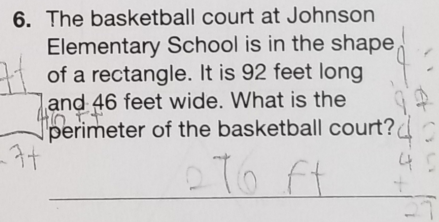 6. The basketball court at Johnson
Elementary School is in the shape
of a rectangle. It is 92 feet long
and 46 feet wide. What is the
perimeter of the basketball court?
276 ft